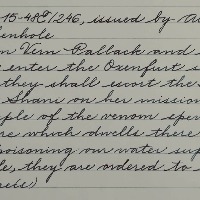 15-48E/246, issued by
enhole
n Vern Ballack and
enter the Oxenfurt s
they shall escort the
Shani on her mission
ple of the venom spe
re which dwells there
poisoning our water sup
le, they are ordered to
reis)